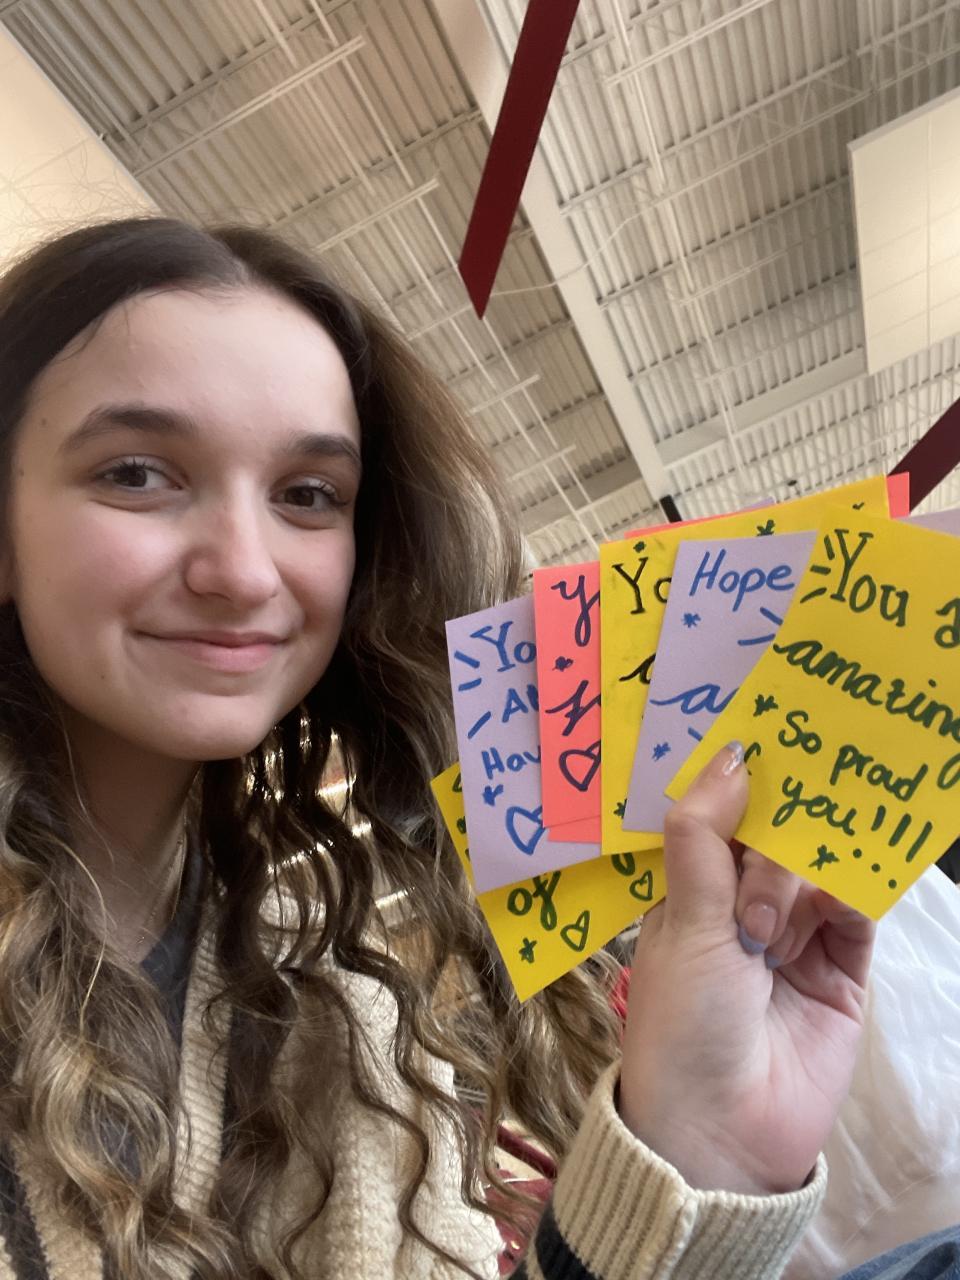 Yo
Al
Hov
y
Yo
a
Hope
a
You a
amazing
So proud
you!!!
of